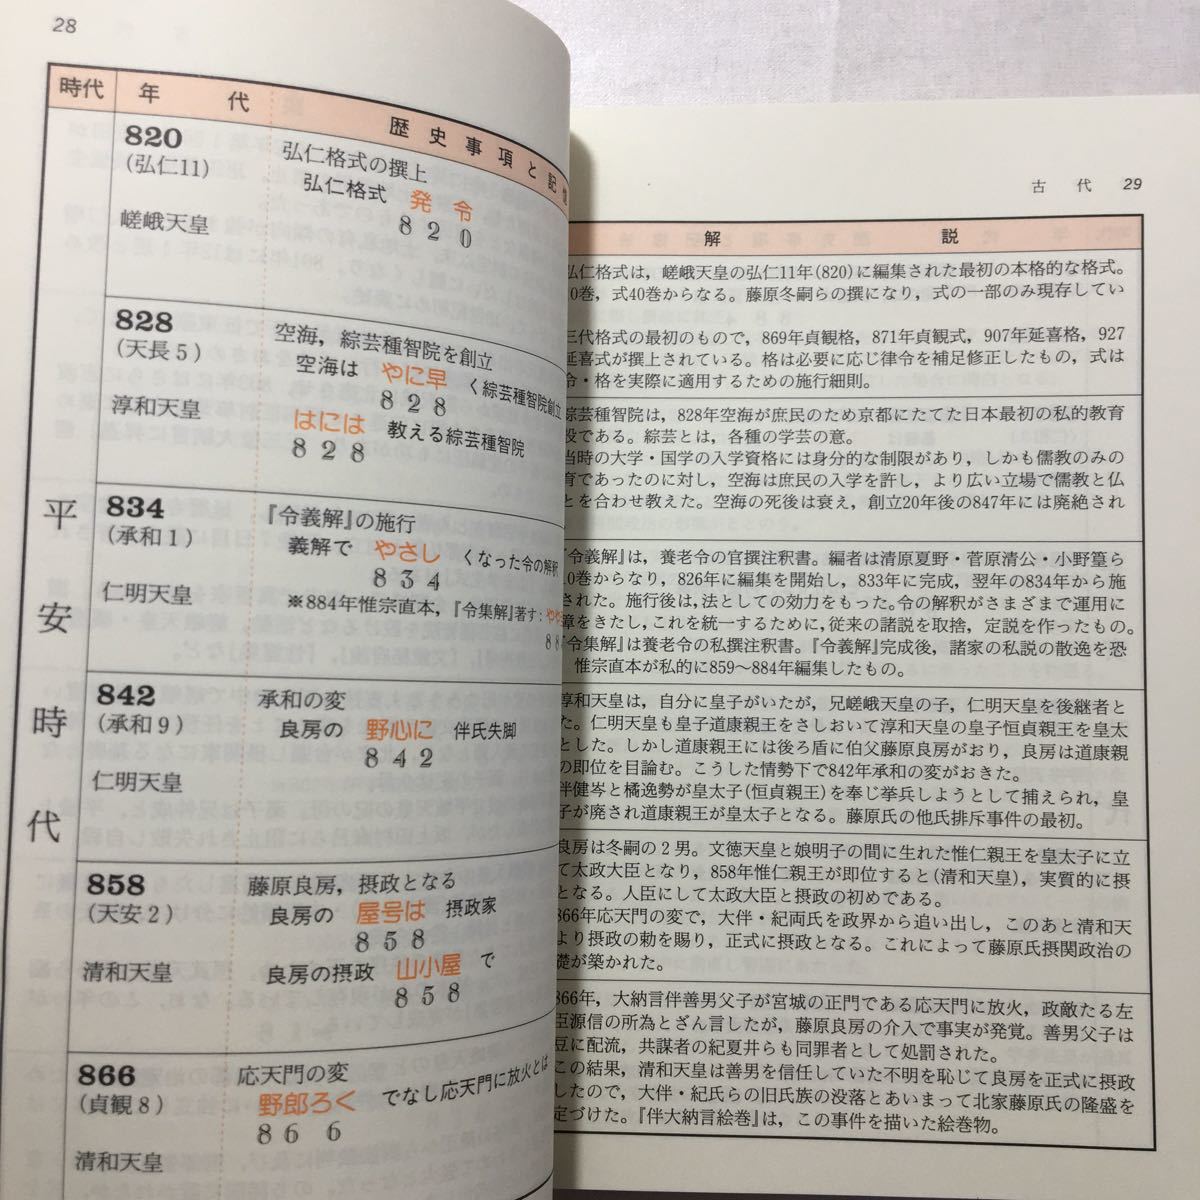 28
時代 年 代 歴史事項と記憶
平安時代
820
(弘仁11)
嵯峨天皇
弘仁格式の撰上
弘仁格式 発令
8 2 0
828
(天長5)
淳和天皇
空海，綜芸種智院を創立
空海は やに早 く綜芸種智院創立
8 2 8
はには 教える綜芸種智院
8 2 8
834
(承和1)
仁明天皇
『令義解』の施行
義解で やさし くなった令の解釈
8 3 4
※884年惟宗直本，『令集解』著す：やや
8 8
842
(承和9)
仁明天皇
承和の変
良房の 野心に 伴氏失脚
8 4 2
858
(天安2)
清和天皇
藤原良房，摂政となる
良房の 屋号は 摂政家
8 5 8
良房の摂政 山小屋 で
8 5 8
866
(貞観8)
清和天皇
応天門の変
野郎ろく でなし応天門に放火とは
8 6 6
古代 29
解 説
弘仁格式は，嵯峨天皇の弘仁11年(820)に編集された最初の本格的な格式。
10巻，式40巻からなる。藤原冬嗣らの撰になり，式の一部のみ現存してい
三代格式の最初のもので，869年貞観格，871年貞観式，907年延喜格，927
延喜式が撰上されている。格は必要に応じ律令を補足修正したもの，式は
令・格を実際に適用するための施行細則。
綜芸種智院は，828年空海が庶民のため京都にたてた日本最初の私的教育
設である。綜芸とは，各種の学芸の意。
当時の大学・国学の入学資格には身分的な制限があり，しかも儒教のみの
育であったのに対し，空海は庶民の入学を許し，より広い立場で儒教と仏
とを合わせ教えた。空海の死後は衰え，創立20年後の847年には廃絶され
『令義解』は，養老令の官撰注釈書。編者は清原夏野・菅原清公・小野篁ら
10巻からなり，826年に編集を開始し，833年に完成，翌年の834年から施
された。施行後は，法としての効力をもった。令の解釈がさまざまで運用に
障をきたし，これを統一するために，従来の諸説を取捨，定説を作ったもの。
『令集解』は養老令の私撰注釈書。『令義解』完成後，諸家の私説の散逸を恐
惟宗直本が私的に859～884年編集したもの。
淳和天皇は，自分に皇子がいたが，兄嵯峨天皇の子，仁明天皇を後継者と
た。仁明天皇も皇子道康親王をさしおいて淳和天皇の皇子恒貞親王を皇太
とした。しかし道康親王には後ろ盾に伯父藤原良房がおり，良房は道康親
の即位を目論む。こうした情勢下で842年承和の変がおきた。
伴健岑と橘逸勢が皇太子(恒貞親王)を奉じ挙兵しようとして捕えられ，皇
子が廃され道康親王が皇太子となる。藤原氏の他氏排斥事件の最初。
良房は冬嗣の2男。文徳天皇と娘明子の間に生れた惟仁親王を皇太子に立
て太政大臣となり，858年惟仁親王が即位すると(清和天皇)，実質的に摂
となる。人臣にして太政大臣と摂政の初めである。
866年応天門の変で，大伴・紀両氏を政界から追い出し，このあと清和天
より摂政の勅を賜り，正式に摂政となる。これによって藤原氏摂関政治の
礎が築かれた。
866年，大納言伴善男父子が宮城の正門である応天門に放火，政敵たる左
臣源信の所為とざん言したが，藤原良房の介入で事実が発覚。善男父子は
豆に配流，共謀者の紀夏井らも同罪者として処罰された。
この結果，清和天皇は善男を信任していた不明を恥じて良房を正式に摂政
したので，大伴・紀氏らの旧氏族の没落とあいまって北家藤原氏の隆盛を
定づけた。『伴大納言絵巻』は，この事件を描いた絵巻物。